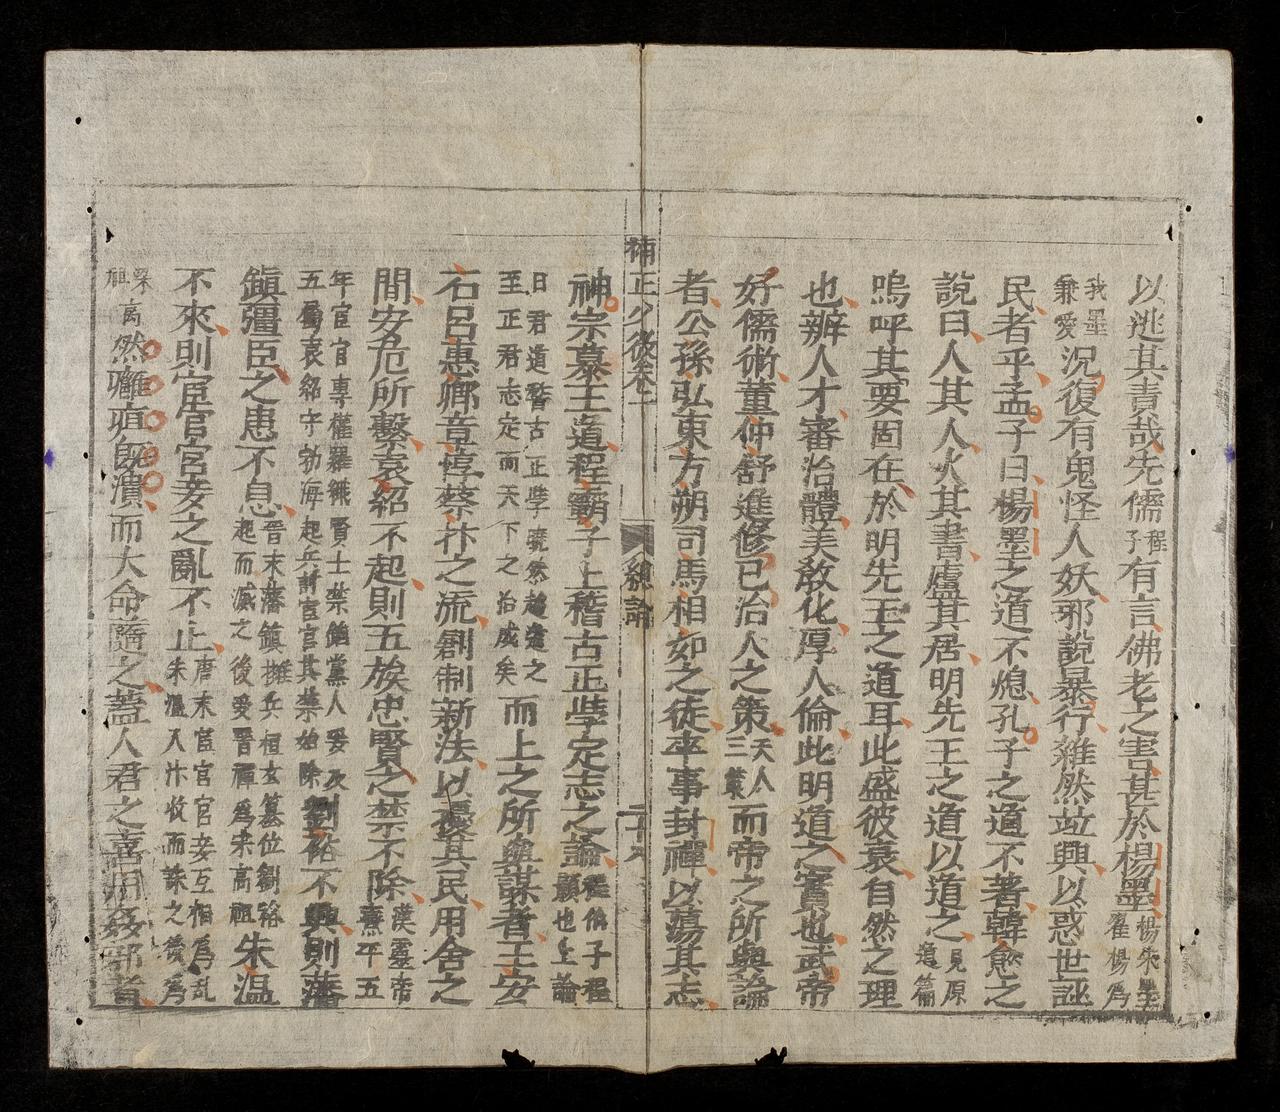 以逃其責哉先儒程子有言佛老之害甚於楊墨楊朱墨翟楊爲
我墨兼愛況復有鬼怪人妖邪說暴行雜然竝興以惑世誣
民者乎孟子曰楊墨之道不熄孔子之道不著韓愈之
說曰人其人火其書廬其居明先王之道以道之見原道篇
嗚呼其要固在於明先王之道耳此盛彼衰自然之理
也辨人才審治體美敎化厚人倫此明道之實也武帝
好儒術董仲舒進修已治人之策天人三策而帝之所與論
者公孫弘東方朔司馬相如之徒率事封禪以蕩其志
補正少微卷二
總論
神宗慕王道程顥子上稽古正學定志之論程伯子程顥也上論
曰君道稽古正學曉然趨道之至正君志定而天下之治成矣而上之所與謀者王安
石呂惠卿章惇蔡卞之流創制新法以擾其民用舍之
間安危所繫袁紹不起則五族忠賢之禁不除漢靈帝熹平五
年宦官專權羅織賢士禁錮黨人妥及五屬袁紹守勃海起兵討宦官其禁始除劉裕不興則藩
鎭彊臣之患不息晉末藩鎮擁兵桓玄簒位劉裕起而滅之後受晉禪爲宋高祖朱溫
不來則宦官宮妾之亂不止唐末宦官宮妾互相爲乱朱溫入汴收而誅之後爲
梁祖离然雖疽旣潰而大命隨之蓋人君之喜用姦邪者